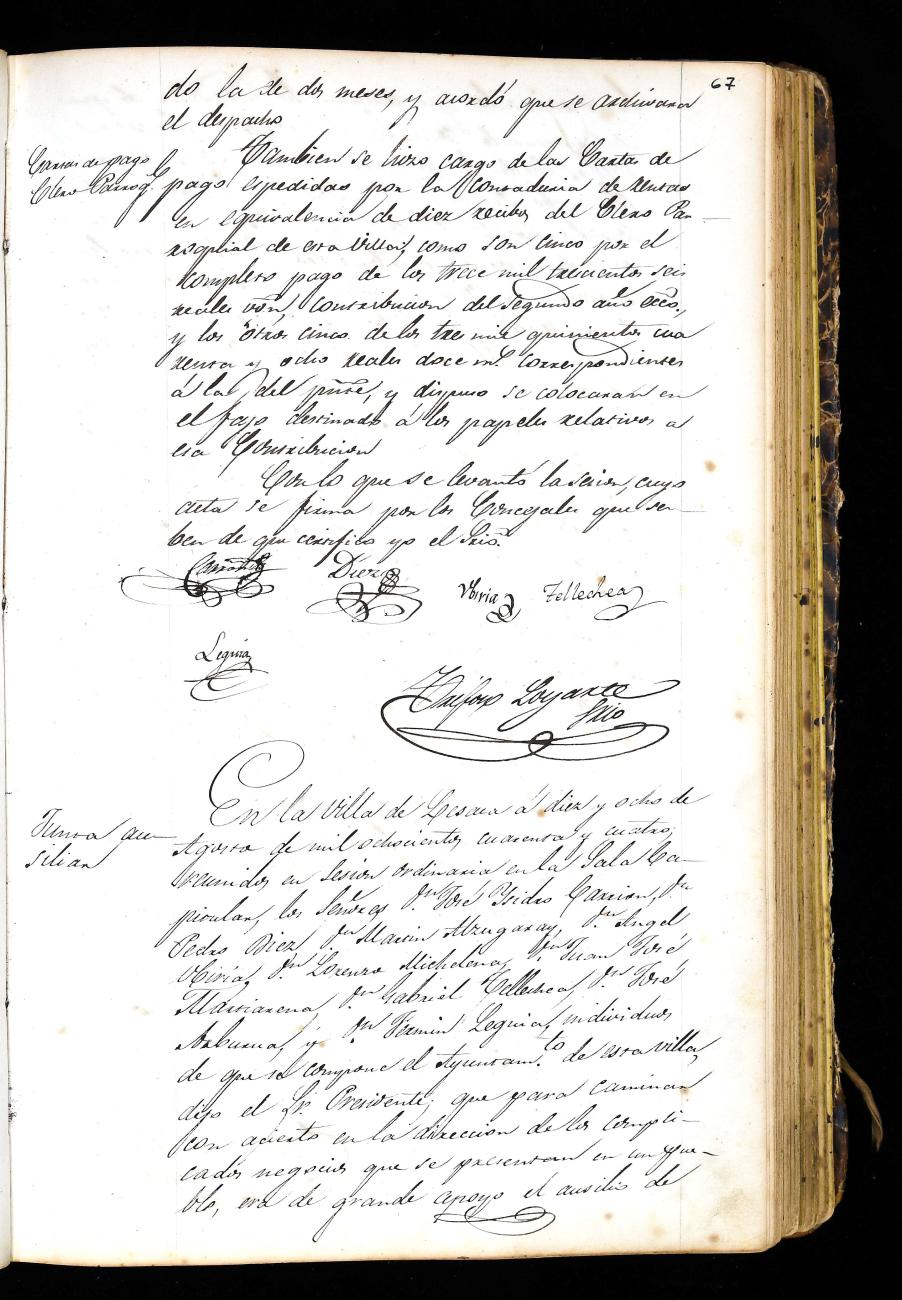 67
do la de dos meses, y acordó que se archivara
el despacho
Cartas de pago
Clero Parroq.l
Tambien se hizo cargo de las Cartas de
pago espedidas por la Contaduria de Rentas
en equivalencia de diez recibos del Clero Par-
roquial de esta Villa, como son cinco por el
completo pago de los trece mil trescientos seis
reales von, contribucion del segundo año ecco,
y los otros cinco de los tres mil quinientos cua
renta y ocho reales doce ms. correspondientes
á la del pnte, y dispuso se colocaran en
el fajo destinado á los papeles relativos a
esa Contribucion
Con lo que se levantó la sesion, cuyo
acta se firma por los Concejales que sa-
ben de que certifico yo el Srio.
Carrion Diez Vbiria Tellechea
Leguia
Trifon Loyarte
Srio
Junta au-
siliar
En la Villa de Lesaca á diez y ocho de
Agosto de mil ochocientos cuarenta y cuatro;
reunidos en sesion ordinaria en la Sala Ca-
pitular, los Señores Dn José Ysidro Carrion, Dn
Pedro Diez Dn Martin Alzugaray, Dn Angel
Vbiria, Dn Lorenzo Michelena, Dn Juan José
Marciarena, Dn Gabriel Tellechea, Dn José
Arburua, y Dn Firmin Leguia, individuos
de que se compone el Ayuntam.to de esta villa,
dijo el Sr. Presidente; que para caminar
con acierto en la direccion de los compli-
cados negocios que se presentan en un pue-
blo, era de grande apoyo el ausilio de